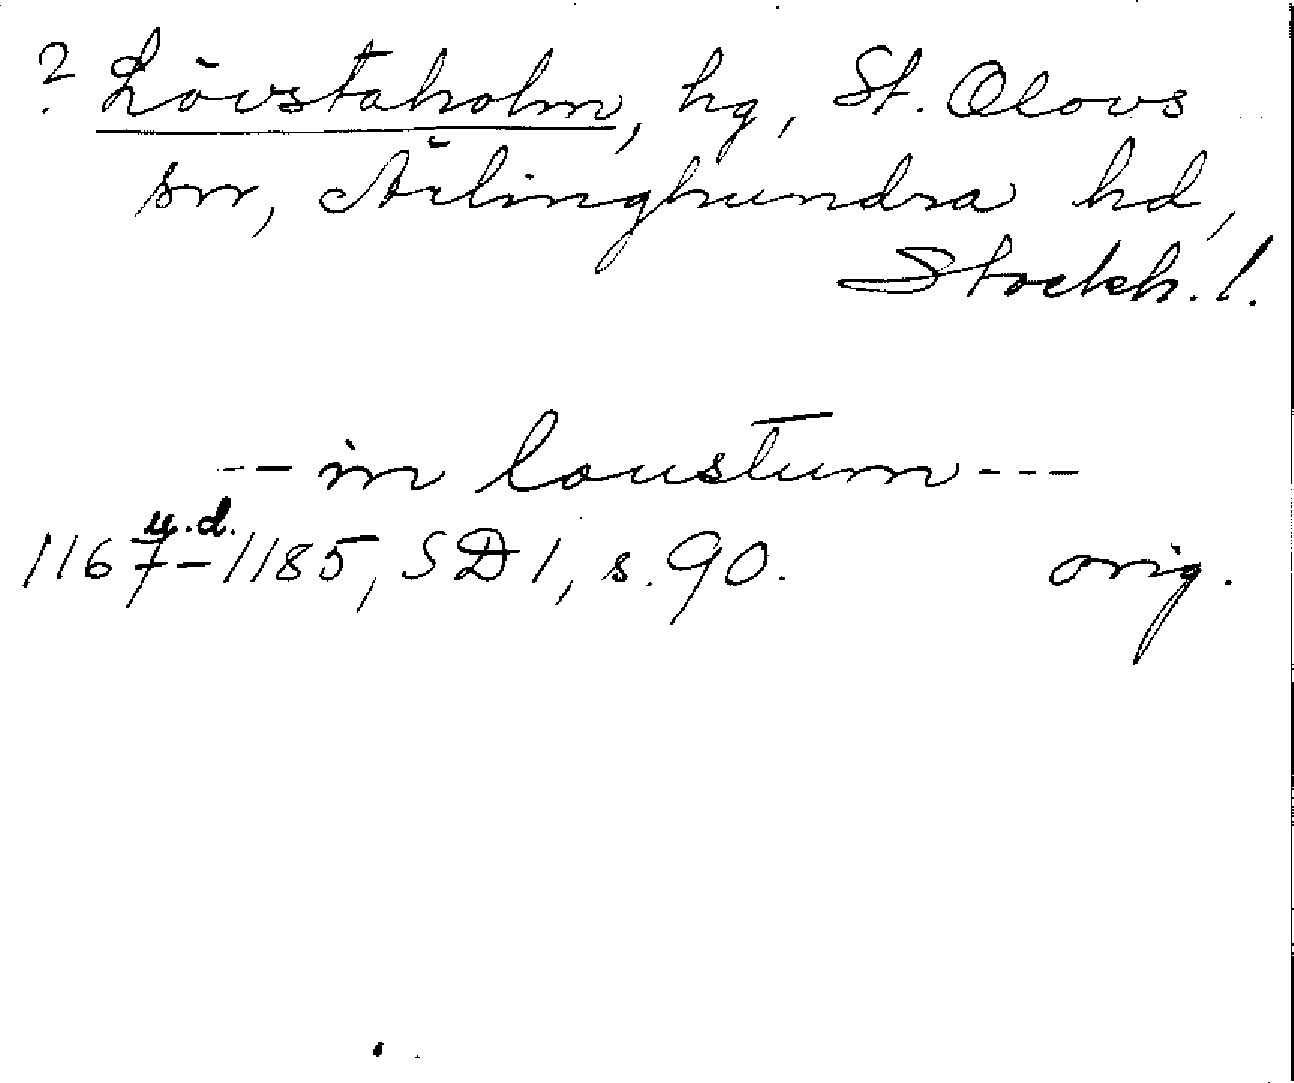 ? Lövstaholm, hg, St. Olovs
sn, Ärlinghundra hd,
Stockh. l.
-- in loustum ---
u.d.
1167-1185, SD 1, s. 90. orig.